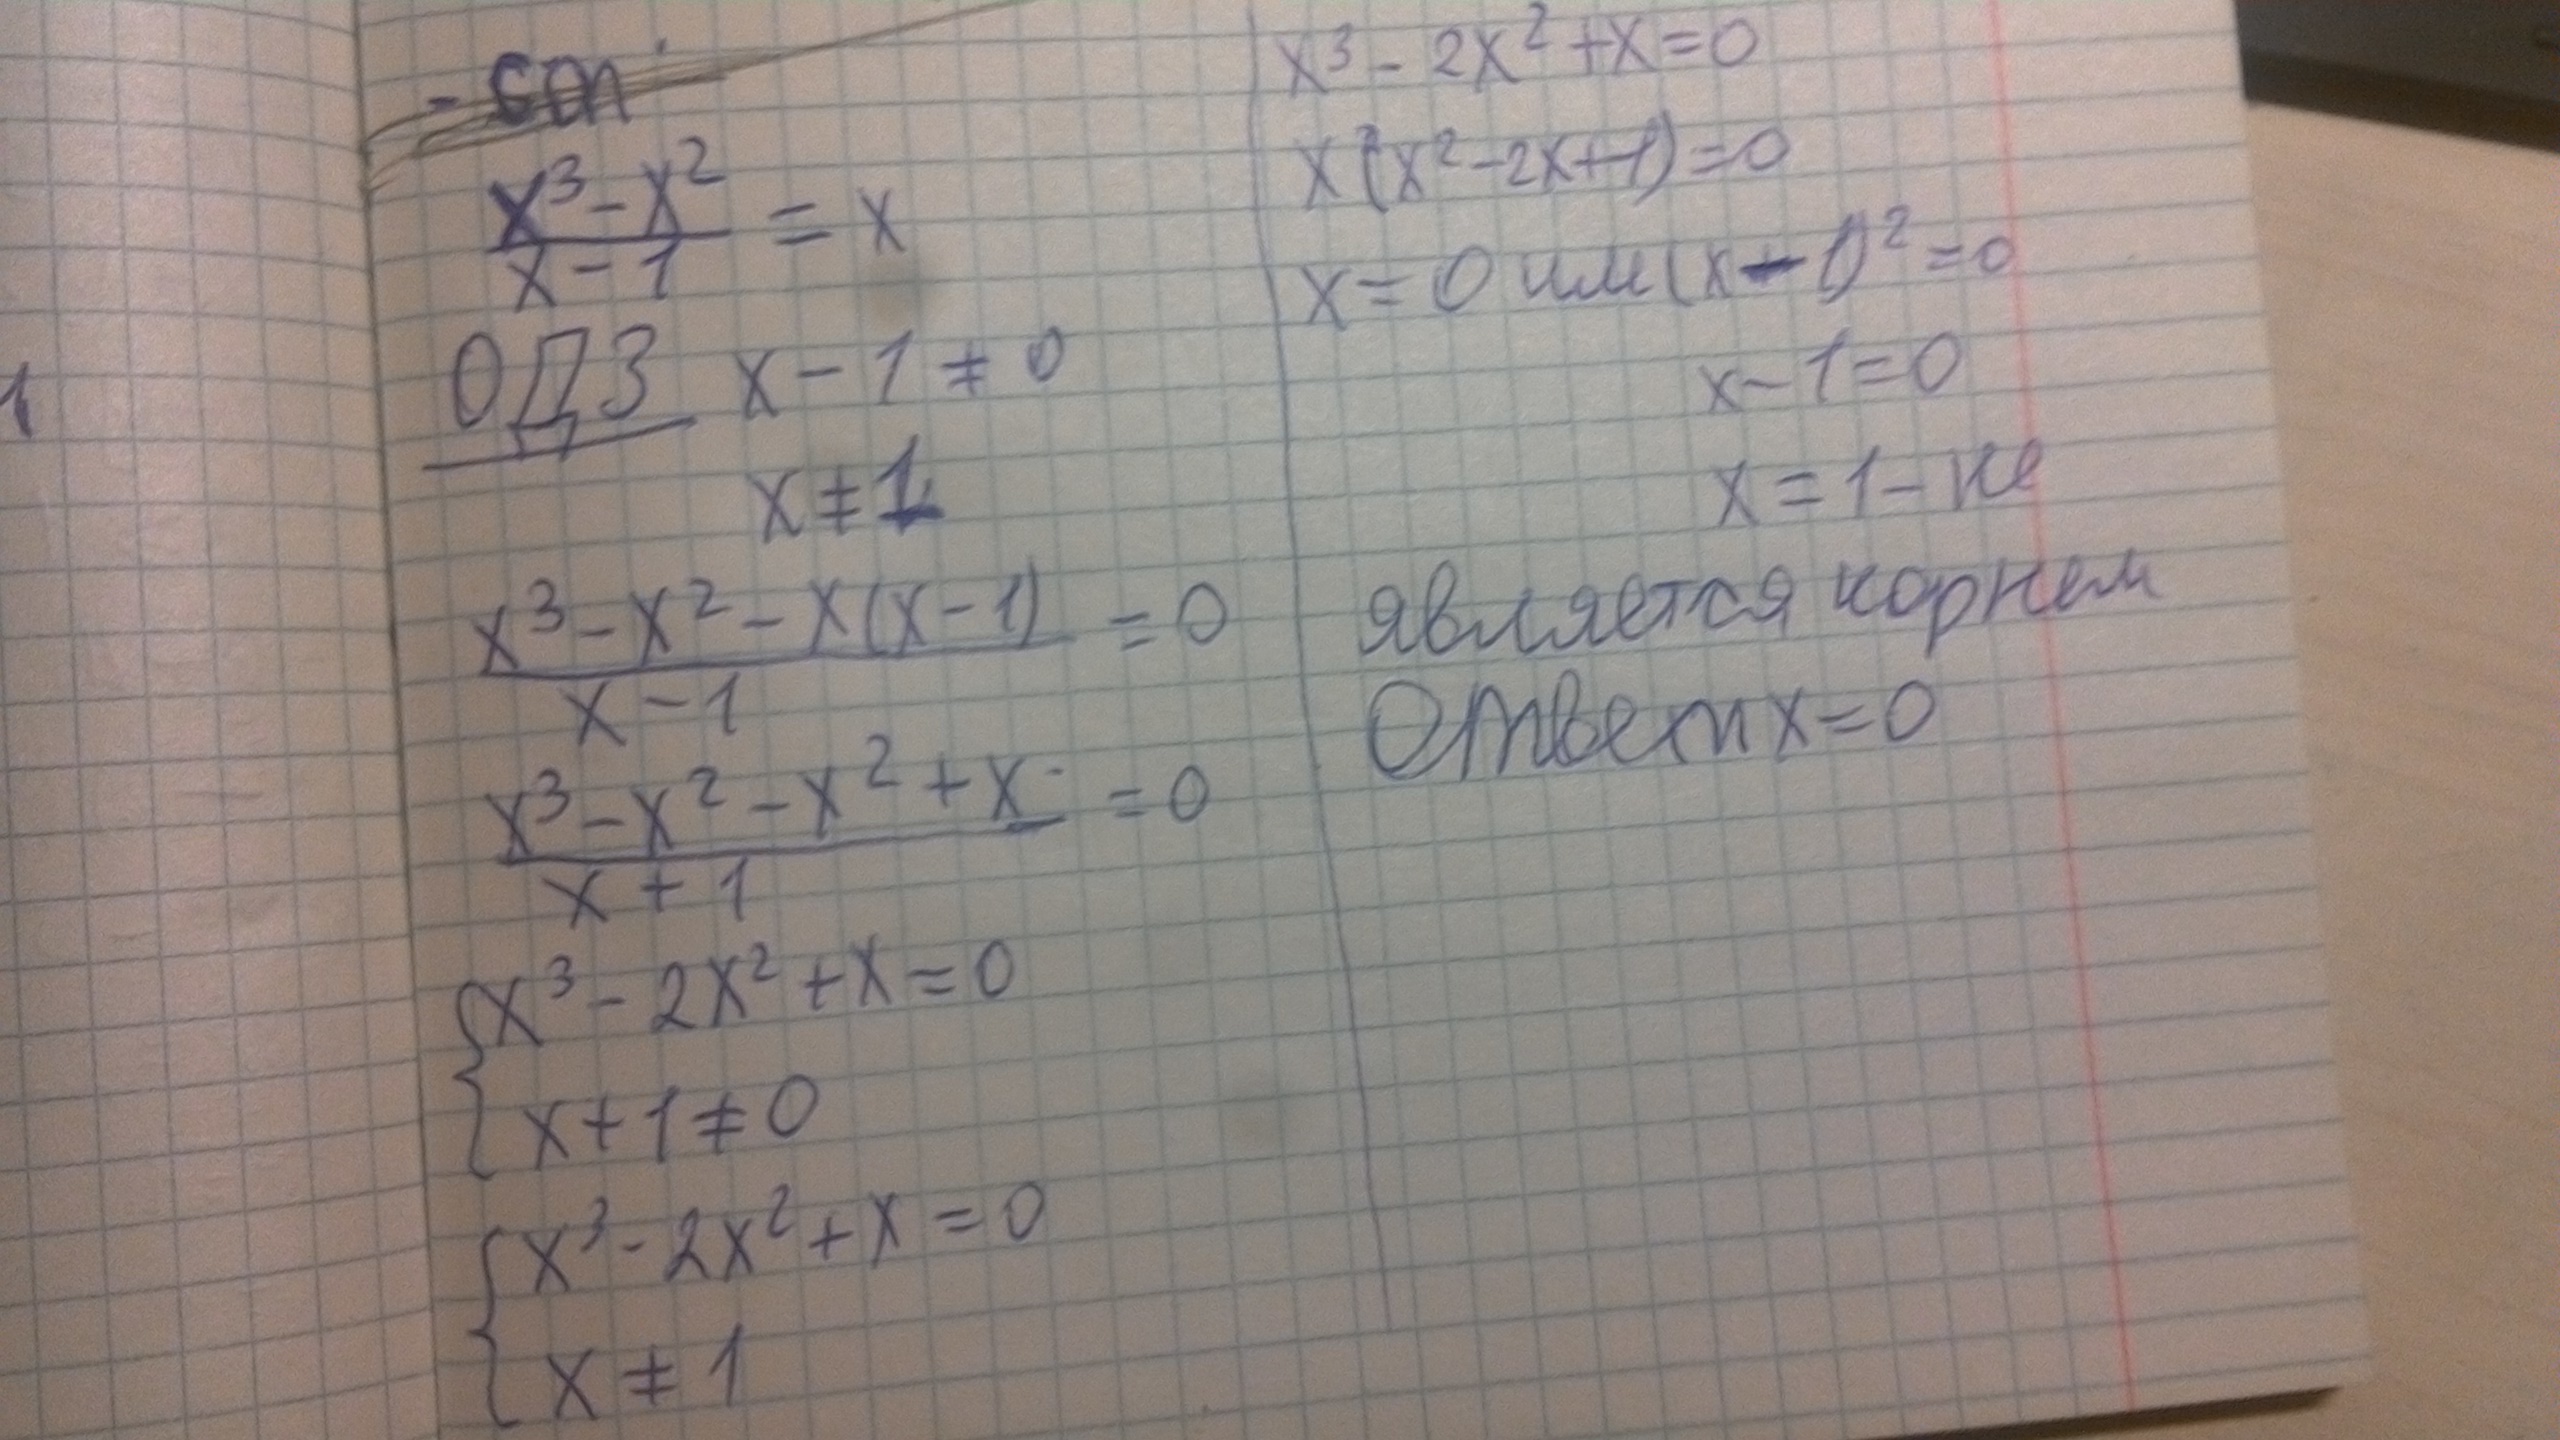 x³ - x² / x - 1 = x
ОДЗ x - 1 ≠ 0
x ≠ 1
x³ - x² - x(x - 1) / x - 1 = 0
x³ - x² - x² + x / x + 1 = 0
{ x³ - 2x² + x = 0
x + 1 ≠ 0
{ x³ - 2x² + x = 0
x ≠ 1
x³ - 2x² + x = 0
x(x² - 2x + 1) = 0
x = 0 или (x - 1)² = 0
x - 1 = 0
x = 1 - не
является корнем
Ответ x = 0